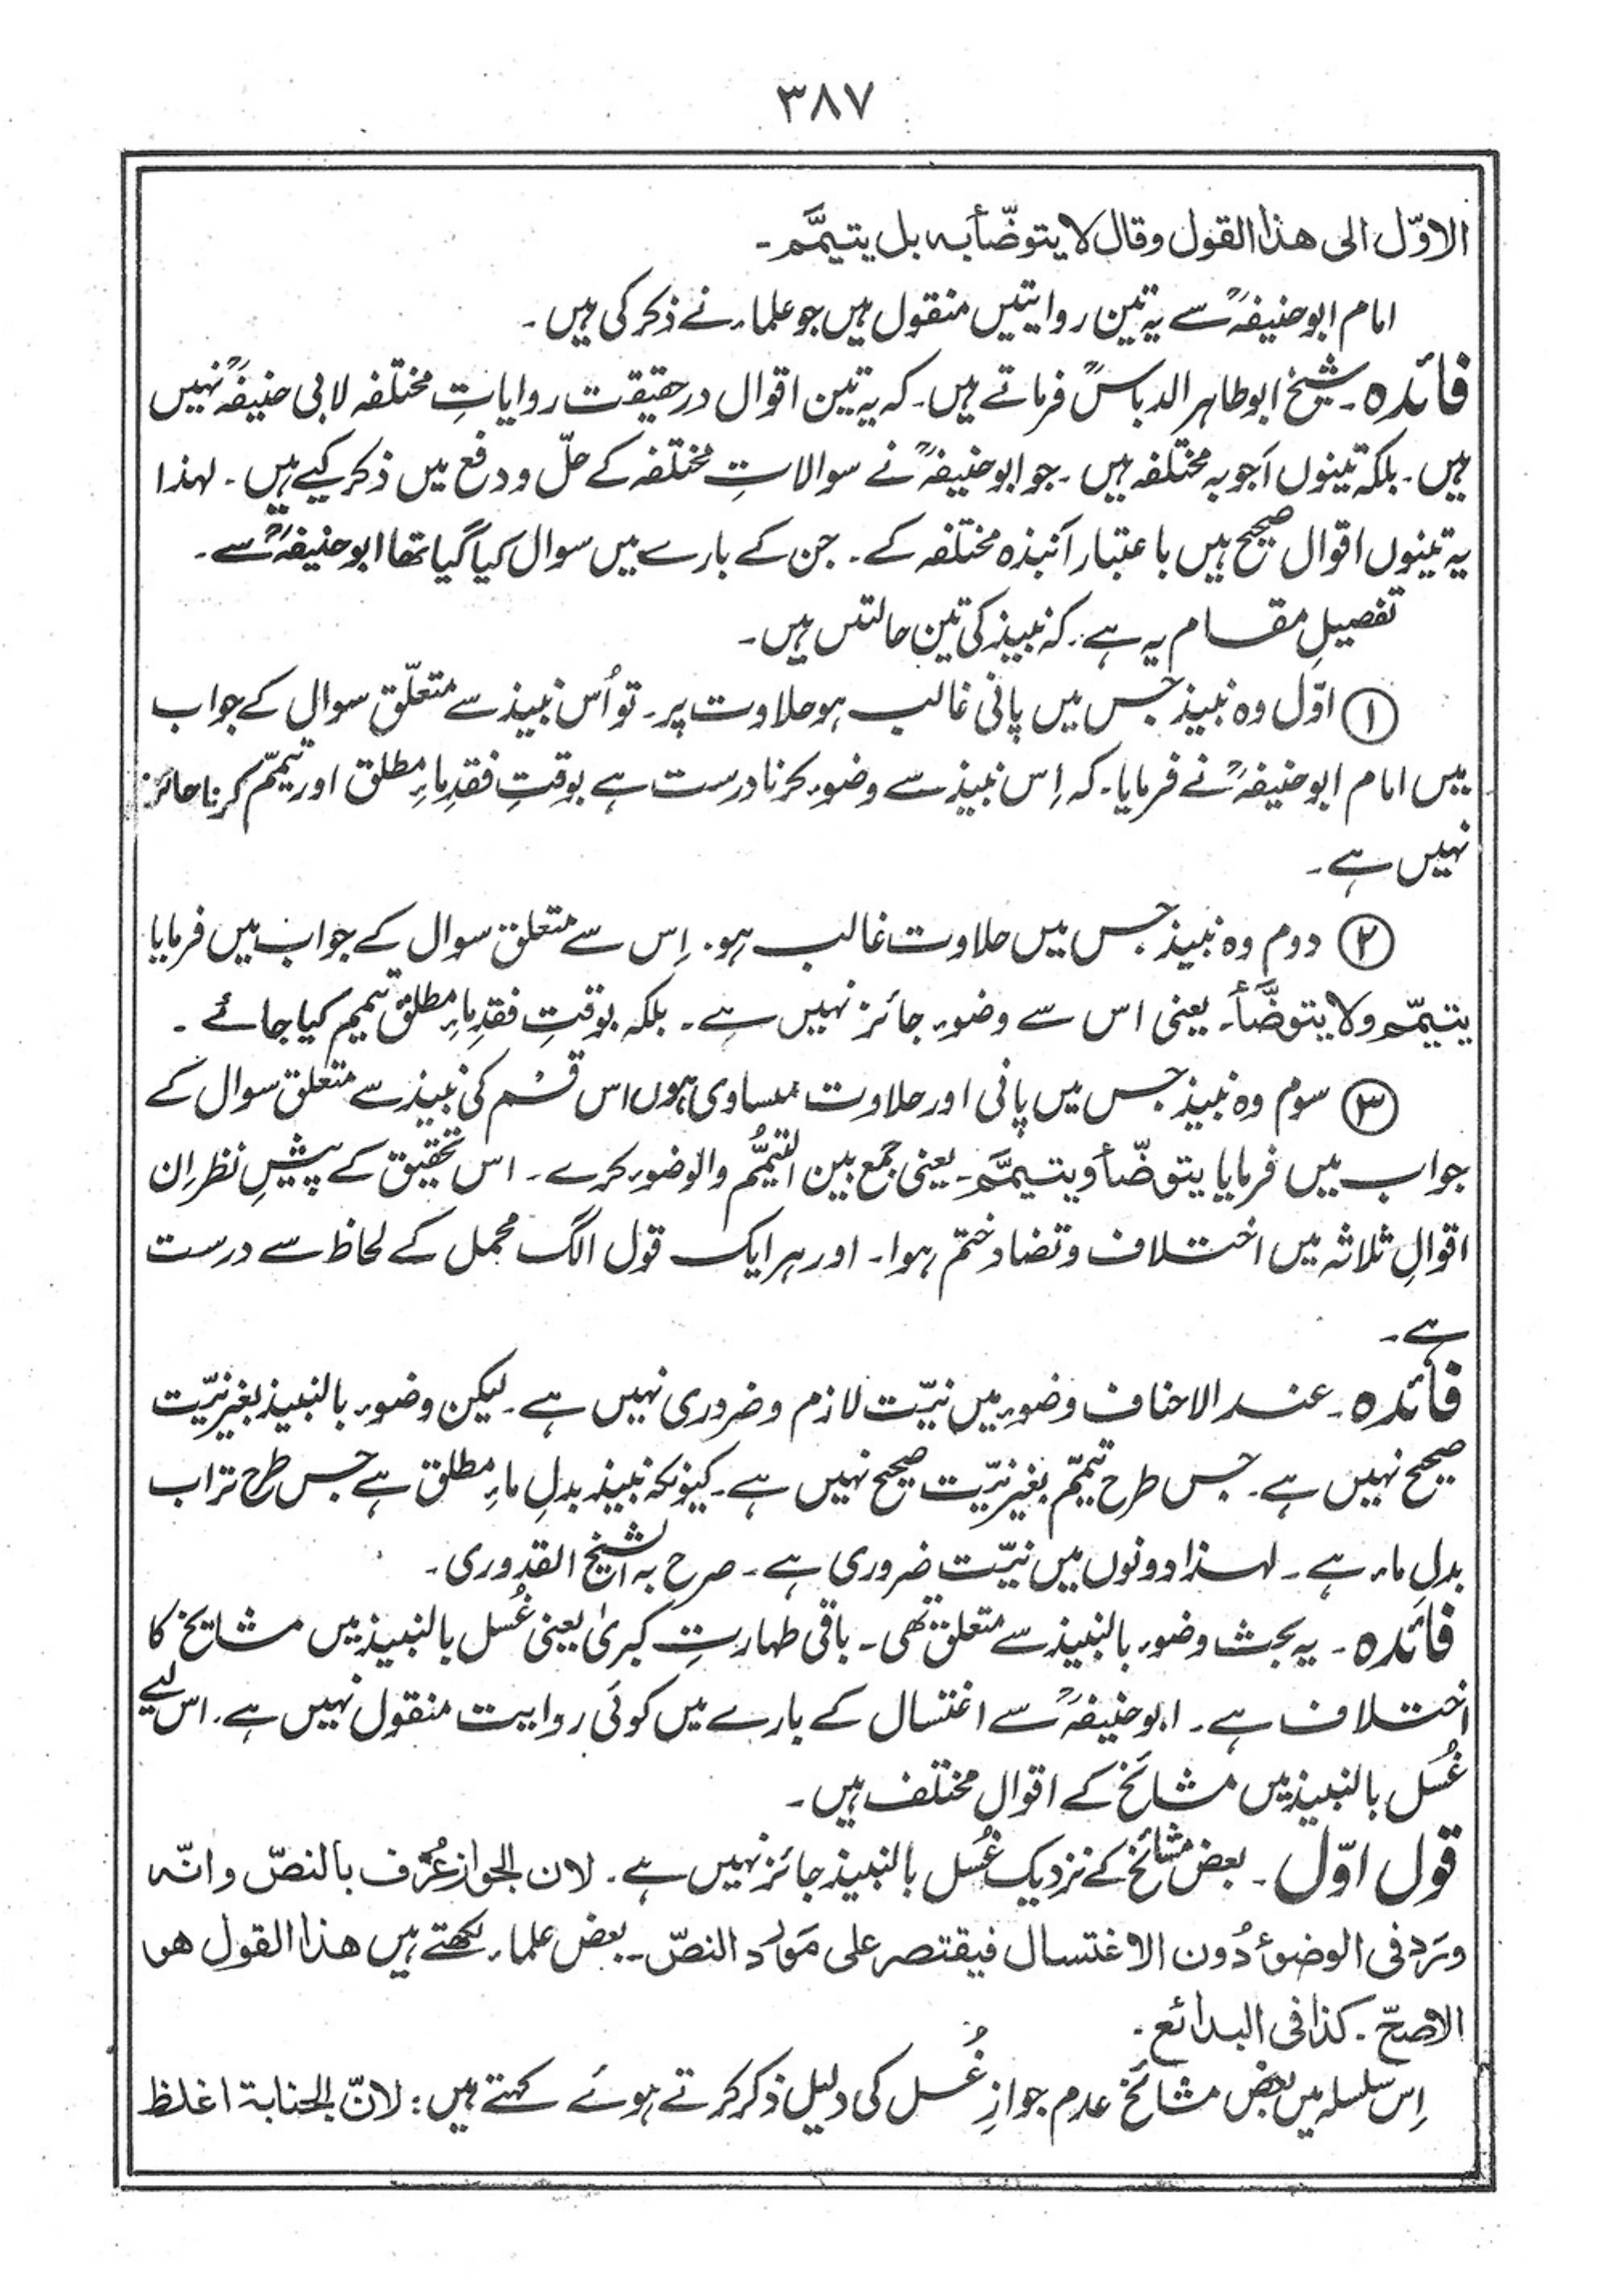 ۳۸۷
الاوّل الی ھذا القول وقال لا یتوضّأ بہ بل یتیمَّم۔
امام ابوحنیفہؒ سے یہ تین روایتیں منقول ہیں جو علماء نے ذکر کی ہیں۔
فائدہ۔ شیخ ابوطاہر الدباسؒ فرماتے ہیں۔ کہ یہ تین اقوال درحقیقت روایاتِ مختلفہ لابی حنیفہؒ نہیں
ہیں۔ بلکہ تینوں اَجوبہ مختلفہ ہیں۔ جو ابوحنیفہؒ نے سوالاتِ مختلفہ کے حلّ و دفع میں ذکر کیے ہیں۔ لہذا
یہ تینوں اقوال صحیح ہیں باعتبار اَنبذہ مختلفہ کے۔ جن کے بارے میں سوال کیا گیا تھا ابوحنیفہؒ سے۔
تفصیلِ مقام یہ ہے۔ کہ نبیذ کی تین حالتیں ہیں۔
① اوّل وہ نبیذ جس میں پانی غالب ہو حلاوت پر۔ تو اُس نبیذ سے متعلّق سوال کے جواب
میں امام ابوحنیفہؒ نے فرمایا۔ کہ اِس نبیذ سے وضوء کرنا درست ہے بوقتِ فقدِ ماءِ مطلق اور تیمّم کرنا جائز
نہیں ہے۔
② دوم وہ نبیذ جس میں حلاوت غالب ہو۔ اِس سے متعلق سوال کے جواب میں فرمایا
یتیمّم ولا یتوضَّأ۔ یعنی اس سے وضوء جائز نہیں ہے۔ بلکہ بوقتِ فقدِ ماءِ مطلق تیمم کیا جائے۔
③ سوم وہ نبیذ جس میں پانی اور حلاوت مساوی ہوں اس قسم کی نبیذ سے متعلق سوال کے
جواب میں فرمایا یتوضّأ ویتیمَّم۔ یعنی جمع بین التیمُّم والوضوء کرے۔ اس تحقیق کے پیشِ نظر اِن
اقوالِ ثلاثہ میں اختلاف و تضاد ختم ہوا۔ اور ہر ایک قول الگ محمل کے لحاظ سے درست
ہے۔
فائدہ۔ عند الاحناف وضوء میں نیّت لازم و ضروری نہیں ہے۔ لیکن وضوء بالنبیذ بغیر نیّت
صحیح نہیں ہے۔ جس طرح تیمّم بغیر نیّت صحیح نہیں ہے۔ کیونکہ نبیذ بدلِ ماءِ مطلق ہے جس طرح تراب
بدلِ ماء ہے۔ لہذا دونوں میں نیّت ضروری ہے۔ صرح بہ الشیخ القدوری۔
فائدہ۔ یہ بحث وضوء بالنبیذ سے متعلق تھی۔ باقی طہارتِ کبریٰ یعنی غُسل بالنبیذ میں مشایخ کا
اختلاف ہے۔ ابوحنیفہؒ سے اغتسال کے بارے میں کوئی روایت منقول نہیں ہے۔ اس لیے
غُسل بالنبیذ میں مشائخ کے اقوال مختلف ہیں۔
قول اوّل۔ بعض مشائخ کے نزدیک غُسل بالنبیذ جائز نہیں ہے۔ لان الجواز عُرِف بالنصّ وانّہ
ورَد فی الوضوء دُون الاغتسال فیقتصر علی مَورد النصّ۔ بعض علماء لکھتے ہیں ھذا القول ھو
الاصحّ۔ کذا فی البدائع۔
اِس سلسلہ میں بعض مشائخ عدم جوازِ غُسل کی دلیل ذکر کرتے ہوئے کہتے ہیں: لانّ الجنابة اغلظ